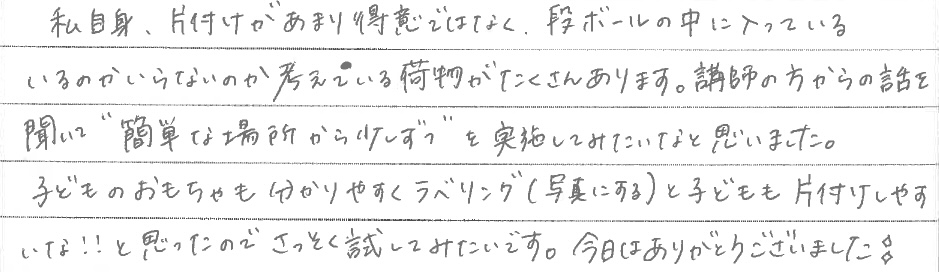 私自身、片付けがあまり得意ではなく、段ボールの中に入っている
いるのかいらないのか考えている荷物がたくさんあります。講師の方からの話を
聞いて“簡単な場所から少しずつ”を実施してみたいなと思いました。
子どものおもちゃも分かりやすくラベリング(写真にする)と子どもも片付けしやす
いな!!と思ったのでさっそく試してみたいです。今日はありがとうございました